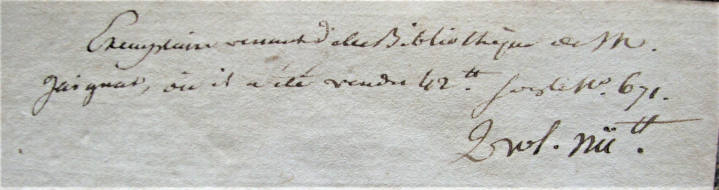 Exemplaire venant de la Bibliothèque de M.
Jaignat, où il a été vendu 42.tt sous le No. 671.
2 vol. nii tt.